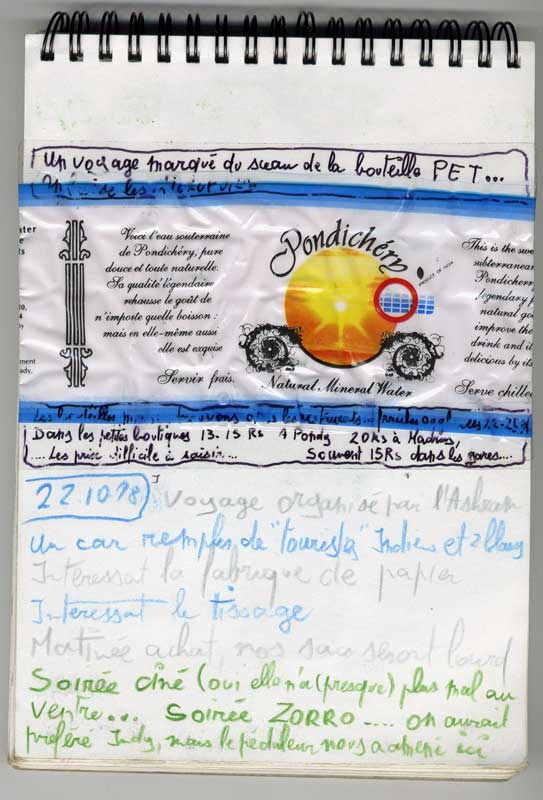 Un voyage marqué du sceau de la bouteille PET...
ter
Voici l'eau souterraine
de Pondichéry, pure
douce et toute naturelle.
Sa qualité légendaire
rehausse le goût de
n'importe quelle boisson :
mais en elle-même aussi
elle est exquise
Servir frais.
Pondichéry
PRODUCE OF INDIA
Natural Mineral Water
This is the swe
subterranean
Pondicherr
legendary p
natural goo
improve the
drink and it
delicious by its
Serve chilled
ment
ady.
Dans les petites boutiques 13-15 Rs A Pondy 20Rs à Madras,
....Les prix difficile à saisir... Souvent 15Rs dans les gares....
22.10.98 Voyage organisé par l'Ashram
Un car remplis de "tourists" Indiens et 2 blancs
Interessat la fabrique de papier
Interessant le tissage
Matinée achat, nos sacs seront lourd
Soirée ciné (oui elle n'a (presque) plus mal au
ventre... Soirée ZORRO .... on aurait
préféré Indy, mais le pédaleur nous a amené ici